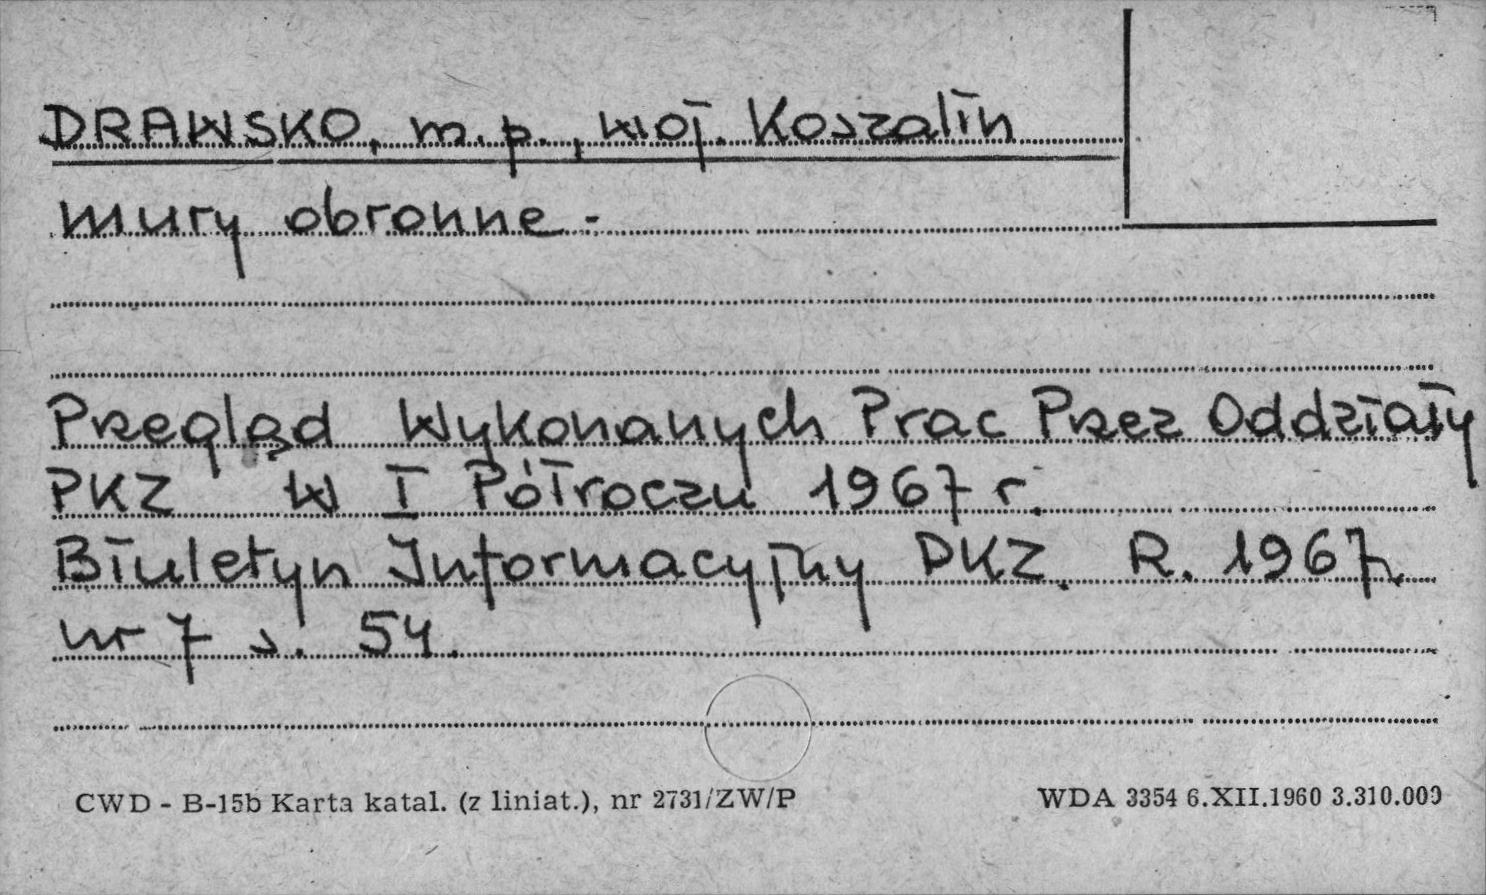 DRAWSKO, m.p., woj. Koszalin
mury obronne -
Przegląd Wykonanych Prac Przez Oddziały
PKZ w I Półroczu 1967 r.
Biuletyn Informacyjny PKZ. R. 1967,
nr 7 s. 54.
CWD - B-15b Karta katal. (z liniat.), nr 2731/ZW/P
WDA 3354 6.XII.1960 3.310.000